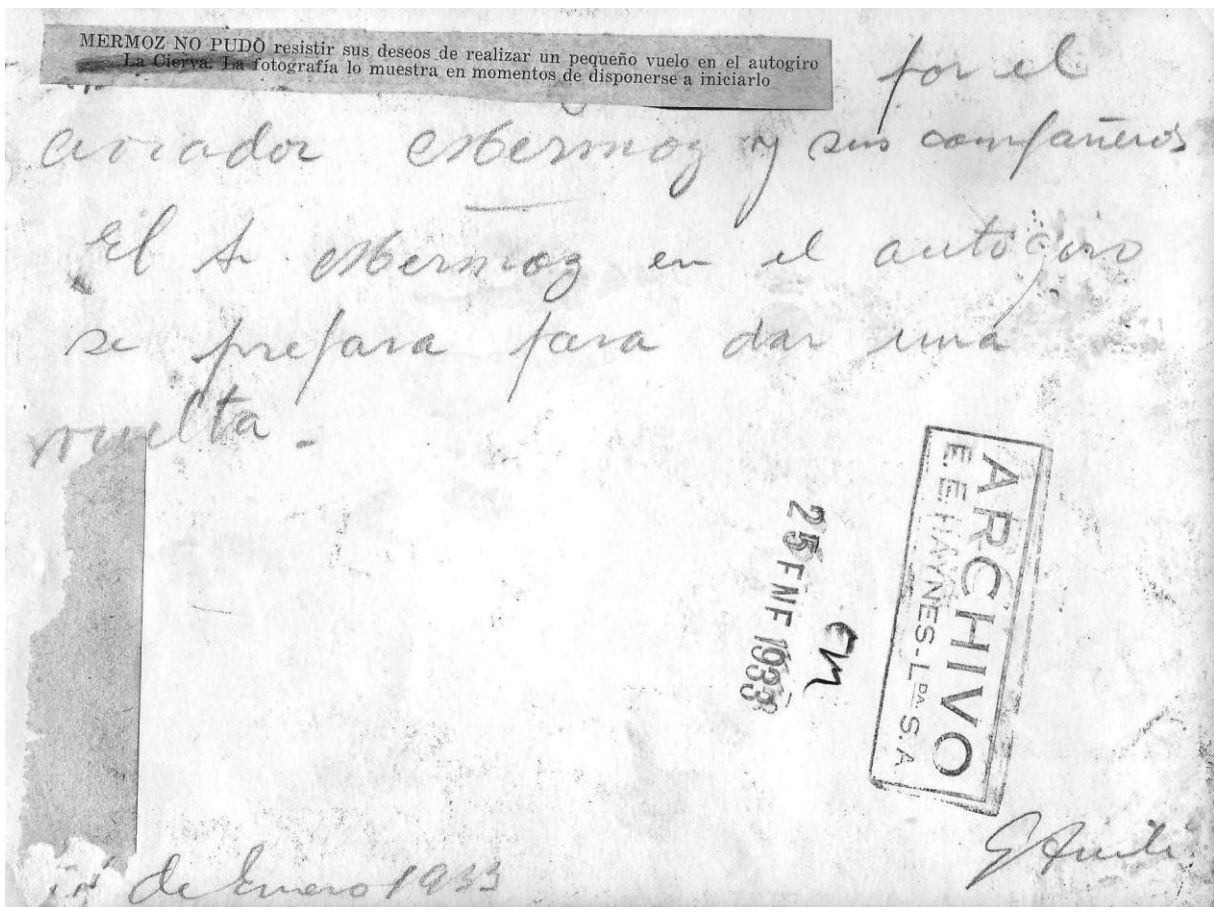 MERMOZ NO PUDO resistir sus deseos de realizar un pequeño vuelo en el autogiro
La Cierva. La fotografía lo muestra en momentos de disponerse a iniciarlo
por el
aviador Mermoz y sus compañeros
El Sr Mermoz en el autogiro
se prepara para dar una
vuelta -
ARCHIVO
E. E. HAYNES - LDA. S. A.
25 ENE 1933
de Enero 1933